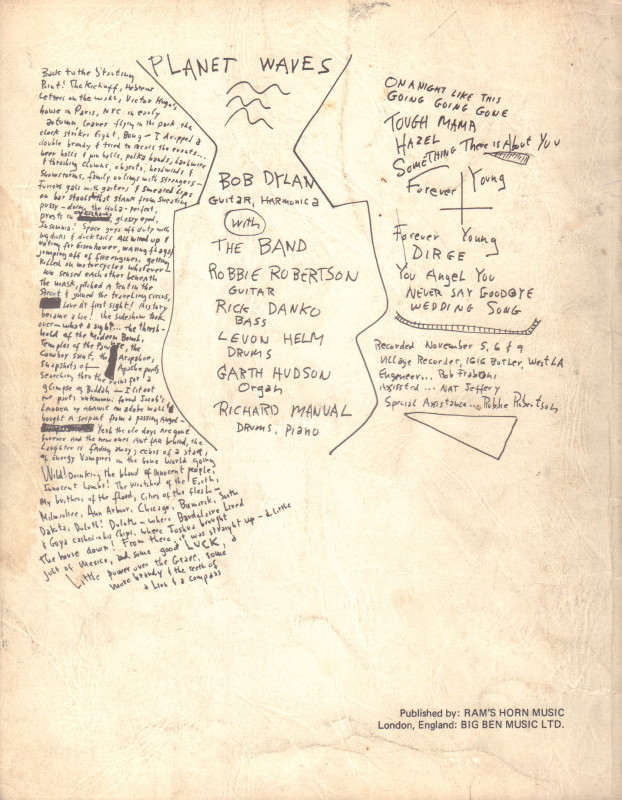 Back to the Starting
Point! The Kickoff, Hebrew
Letters on the wall, Victor Hugo's
house in Paris, NYC in early
autumn, leaves flying in the park, the
clock strikes Eight, Bong — I dropped a
double brandy & tried to recall the events...
beer halls & pin balls, polka bands, barbwire
& thrashing clowns, objects, headwinds &
Snowstorms, family outings with strangers —
Furious gals with garters & smeared lips
on bar stools that stank from sweating
pussy — doing the Hula — perfect,
priests in overhauls, glassy eyed,
Insomnia! Space guys off duty with
big dicks & ducktails All wired up &
voting for Eisenhower, waving flags &
jumping off of fire engines, getting
killed on motorcycles whatever —
We sensed each other beneath
the mask, pitched a tent in the
Street & joined the traveling circus,
love at first sight! History
became a lie! the sideshow took
over — what a sight... the thresh-
hold of the Modern Bomb,
Temples of the Pawnee, the
Cowboy Saint, the Arapahoe,
Snapshots of — Apache poets
Searching thru the ruins for a
glimpse of Buddah — I lit out
for parts unknown, found Jacob's
Ladder up against an adobe wall &
bought a serpent from a passing Angel —
Yeah the ole days are gone
forever and the new ones Aint far behind, the
Laughter is fading away, echos of a star,
of Energy Vampires in the Gone World going
Wild! Drinking the blood of innocent people,
Innocent Lambs! The Wretched of the Earth,
My brothers of the flood, Cities of the flesh —
Milwaukee, Ann Arbor, Chicago, Bismarck, South
Dakota, Duluth! Duluth — where Baudelaire Lived
& Goya cashed in his Chips, where Joshua brought
The house down! From there, it was straight up — a little
jolt of Mexico, and some good LUCK, a
Little power over the Grave, some
more brandy & the teeth of
a Lion & a compass
PLANET WAVES
BOB DYLAN
Guitar, Harmonica
With
THE BAND
ROBBIE ROBERTSON
GUITAR
RICK DANKO
BASS
LEVON HELM
DRUMS
GARTH HUDSON
Organ
RICHARD MANUAL
DRUMS, Piano
ON A NIGHT LIKE THIS
GOING GOING GONE
TOUGH MAMA
HAZEL
SOMETHING There is About You
Forever Young
Forever Young
DIRGE
You Angel You
NEVER SAY GOODBYE
WEDDING SONG
Recorded November 5, 6 & 9
Village Recorder, 1616 Butler, West LA
Engineer... Rob Fraboni
Assisted... NAT Jeffery
Special Assistance... Robbie Robertson
Published by: RAM'S HORN MUSIC
London, England: BIG BEN MUSIC LTD.